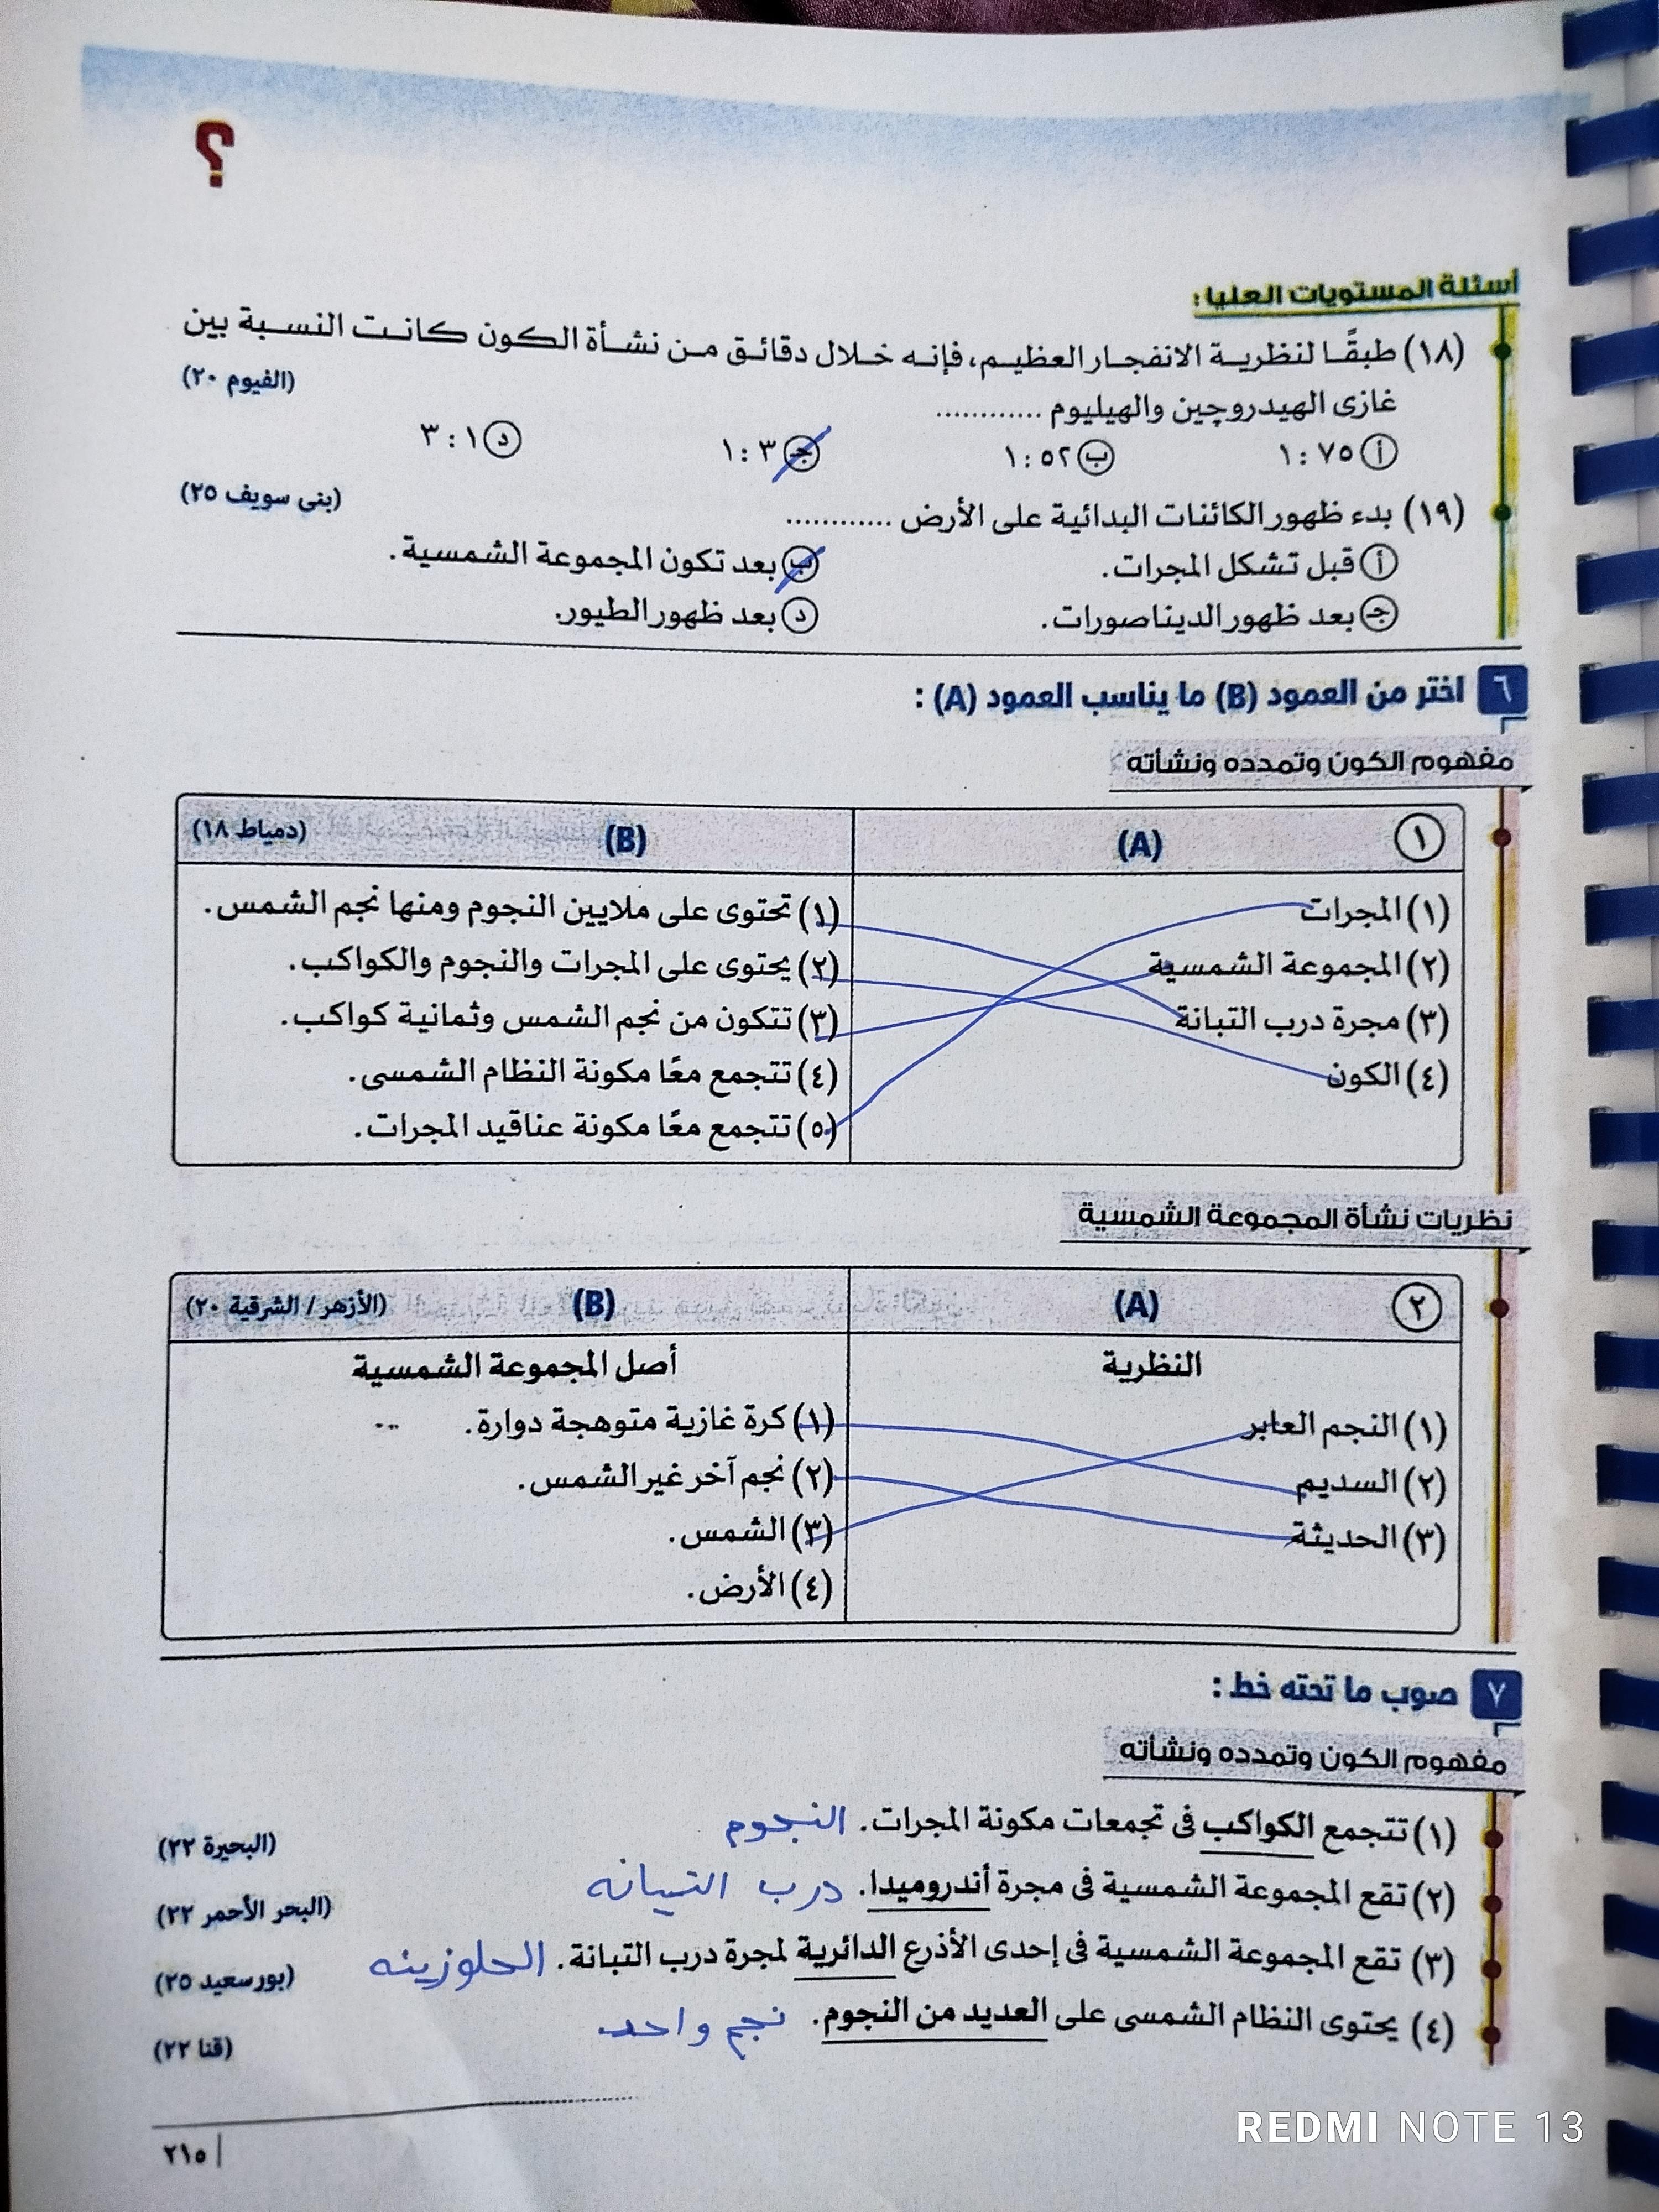 ؟
أسئلة المستويات العليا :
(١٨) طبقًا لنظرية الانفجار العظيم، فإنه خلال دقائق من نشأة الكون كانت النسبة بين
غازى الهيدروچين والهيليوم ............ (الفيوم ٢٠)
أ ٧٥ : ١ ب ٥٢ : ١ جـ ٣ : ١ د ١ : ٣
(١٩) بدء ظهور الكائنات البدائية على الأرض ............ (بنى سويف ٢٥)
أ قبل تشكل المجرات. ب بعد تكون المجموعة الشمسية.
جـ بعد ظهور الديناصورات. د بعد ظهور الطيور.
٦ اختر من العمود (B) ما يناسب العمود (A) :
مفهوم الكون وتمدده ونشأته
١ (A) (B) (دمياط ١٨)
(١) المجرات (١) تحتوى على ملايين النجوم ومنها نجم الشمس.
(٢) المجموعة الشمسية (٢) يحتوى على المجرات والنجوم والكواكب.
(٣) مجرة درب التبانة (٣) تتكون من نجم الشمس وثمانية كواكب.
(٤) الكون (٤) تتجمع معًا مكونة النظام الشمسى.
(٥) تتجمع معًا مكونة عناقيد المجرات.
نظريات نشأة المجموعة الشمسية
٢ (A) (B) (الأزهر / الشرقية ٢٠)
النظرية أصل المجموعة الشمسية
(١) النجم العابر (١) كرة غازية متوهجة دوارة.
(٢) السديم (٢) نجم آخر غير الشمس.
(٣) الحديثة (٣) الشمس.
(٤) الأرض.
٧ صوب ما تحته خط :
مفهوم الكون وتمدده ونشأته
(١) تتجمع الكواكب فى تجمعات مكونة المجرات. النجوم (البحيرة ٢٢)
(٢) تقع المجموعة الشمسية فى مجرة أندروميدا. درب التبانه (البحر الأحمر ٢٢)
(٣) تقع المجموعة الشمسية فى إحدى الأذرع الدائرية لمجرة درب التبانة. الحلوزينه (بورسعيد ٢٥)
(٤) يحتوى النظام الشمسى على العديد من النجوم. نجم واحد (قنا ٢٢)
٢١٥
REDMI NOTE 13